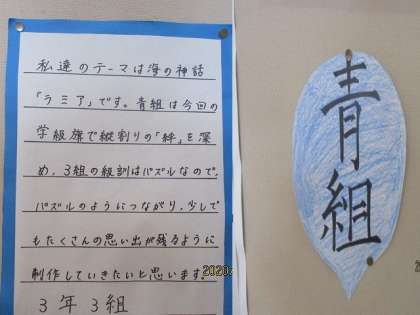 私達のテーマは海の神話
「ラミア」です。青組は今回の
学級旗で縦割りの「絆」を深
め、3組の級訓はパズルなので、
パズルのようにつながり、少しで
もたくさんの思い出が残るように
制作していきたいと思います。
3年3組
青組
2020